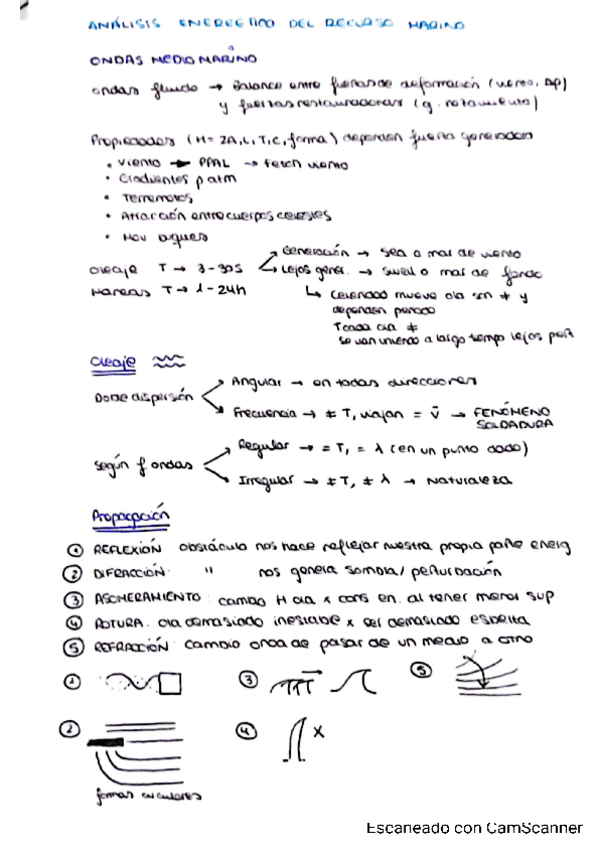 ANÁLISIS ENERGÉTICO DEL RECURSO MARINO
ONDAS MEDIO MARINO
Ondas fluido → Balance entre fuerzas de deformación (viento, Δp)
y fuerzas restauradoras (g. rozamiento)
Propiedades (H= 2A, L, T, C, forma) dependen fuerza generadora
• Viento → PPAL → Fetch viento
• Gradientes p atm
• Terremotos
• Atracción entre cuerpos celestes
• Mov buques
Oleaje T → 3-30s
Generación → Sea o mar de viento
Lejos gener. → Swell o mar de fondo
Mareas T → 1-24h
↳ Celeridad mueve ola son ≠ y
dependen periodo
T cada ola ≠
Se van uniendo a largo tiempo lejos
Oleaje
Doble dispersión
Angular → en todas direcciones
Frecuencia → ≠ T, viajan = v → FENÓMENO
SOLDADURA
Según f ondas
Regular → = T, = λ (en un punto dado)
Irregular → ≠ T, ≠ λ → Naturaleza
Propagación
① REFLEXIÓN obstáculo nos hace reflejar nuestra propia parte energ
② DIFRACCIÓN: " nos genera sombra/ perturbación
③ ASOMERAMIENTO: cambio H ola x cons en. al tener menor sup
④ ROTURA: ola demasiado inestable x ser demasiado esbelta
⑤ REFRACCIÓN: Cambio onda de pasar de un medio a otro
① ③ ⑤
② ④ X
formas circulares
Escaneado con CamScanner